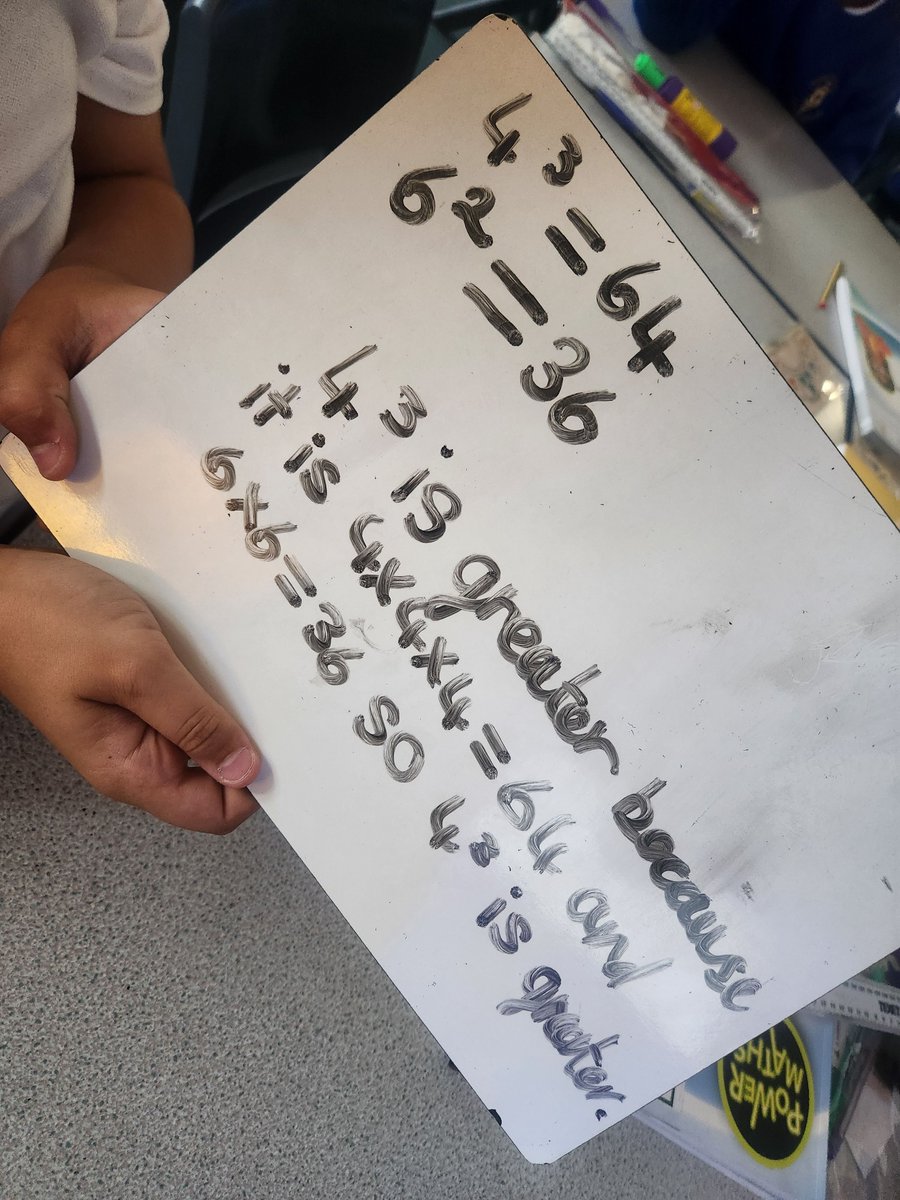 4³ = 64
6² = 36
4³ is greater because
it is 4x4x4 = 64 and
6x6 = 36 so 4³ is greater.
POWER
MATHS